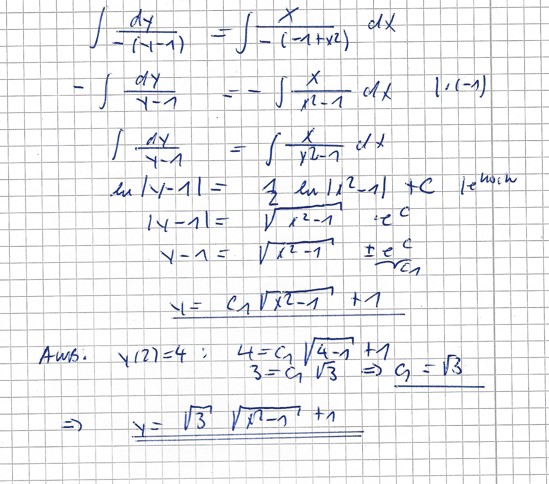 ∫ dy/-(y-1) = ∫ x/-(-1+x²) dx
- ∫ dy/y-1 = - ∫ x/x²-1 dx |·(-1)
∫ dy/y-1 = ∫ x/x²-1 dx
ln |y-1| = 1/2 ln |x²-1| + C |e hoch
|y-1| = √x²-1 · e^C
y-1 = √x²-1 ± e^C
C₁
y = C₁ √x²-1 + 1
AWB. y(2)=4 : 4 = C₁ √4-1 + 1
3 = C₁ √3 ⇒ C₁ = √3
⇒ y = √3 √x²-1 + 1